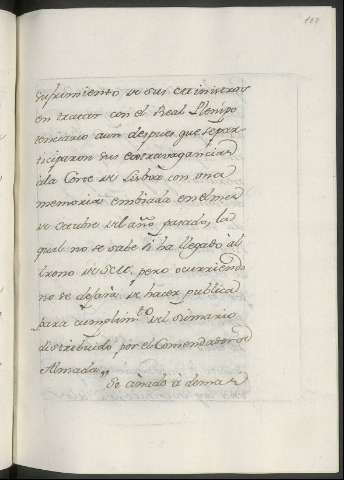 sufrimiento de sus
en tratar con el Real Plenipo
tenciario aun despues que se par-
ticiparon sus extravagancias
à la Corte de Lisboa con una
memoria embiada en el mes
de octubre del año pasado, la
qual no se sabe si ha llegado al
trono de S.M., pero ocurriendo
no se dejara de hacer publica
para cumplim.to del sumario
distribuido por el Comendador de
Almada,,
Se añade à demas